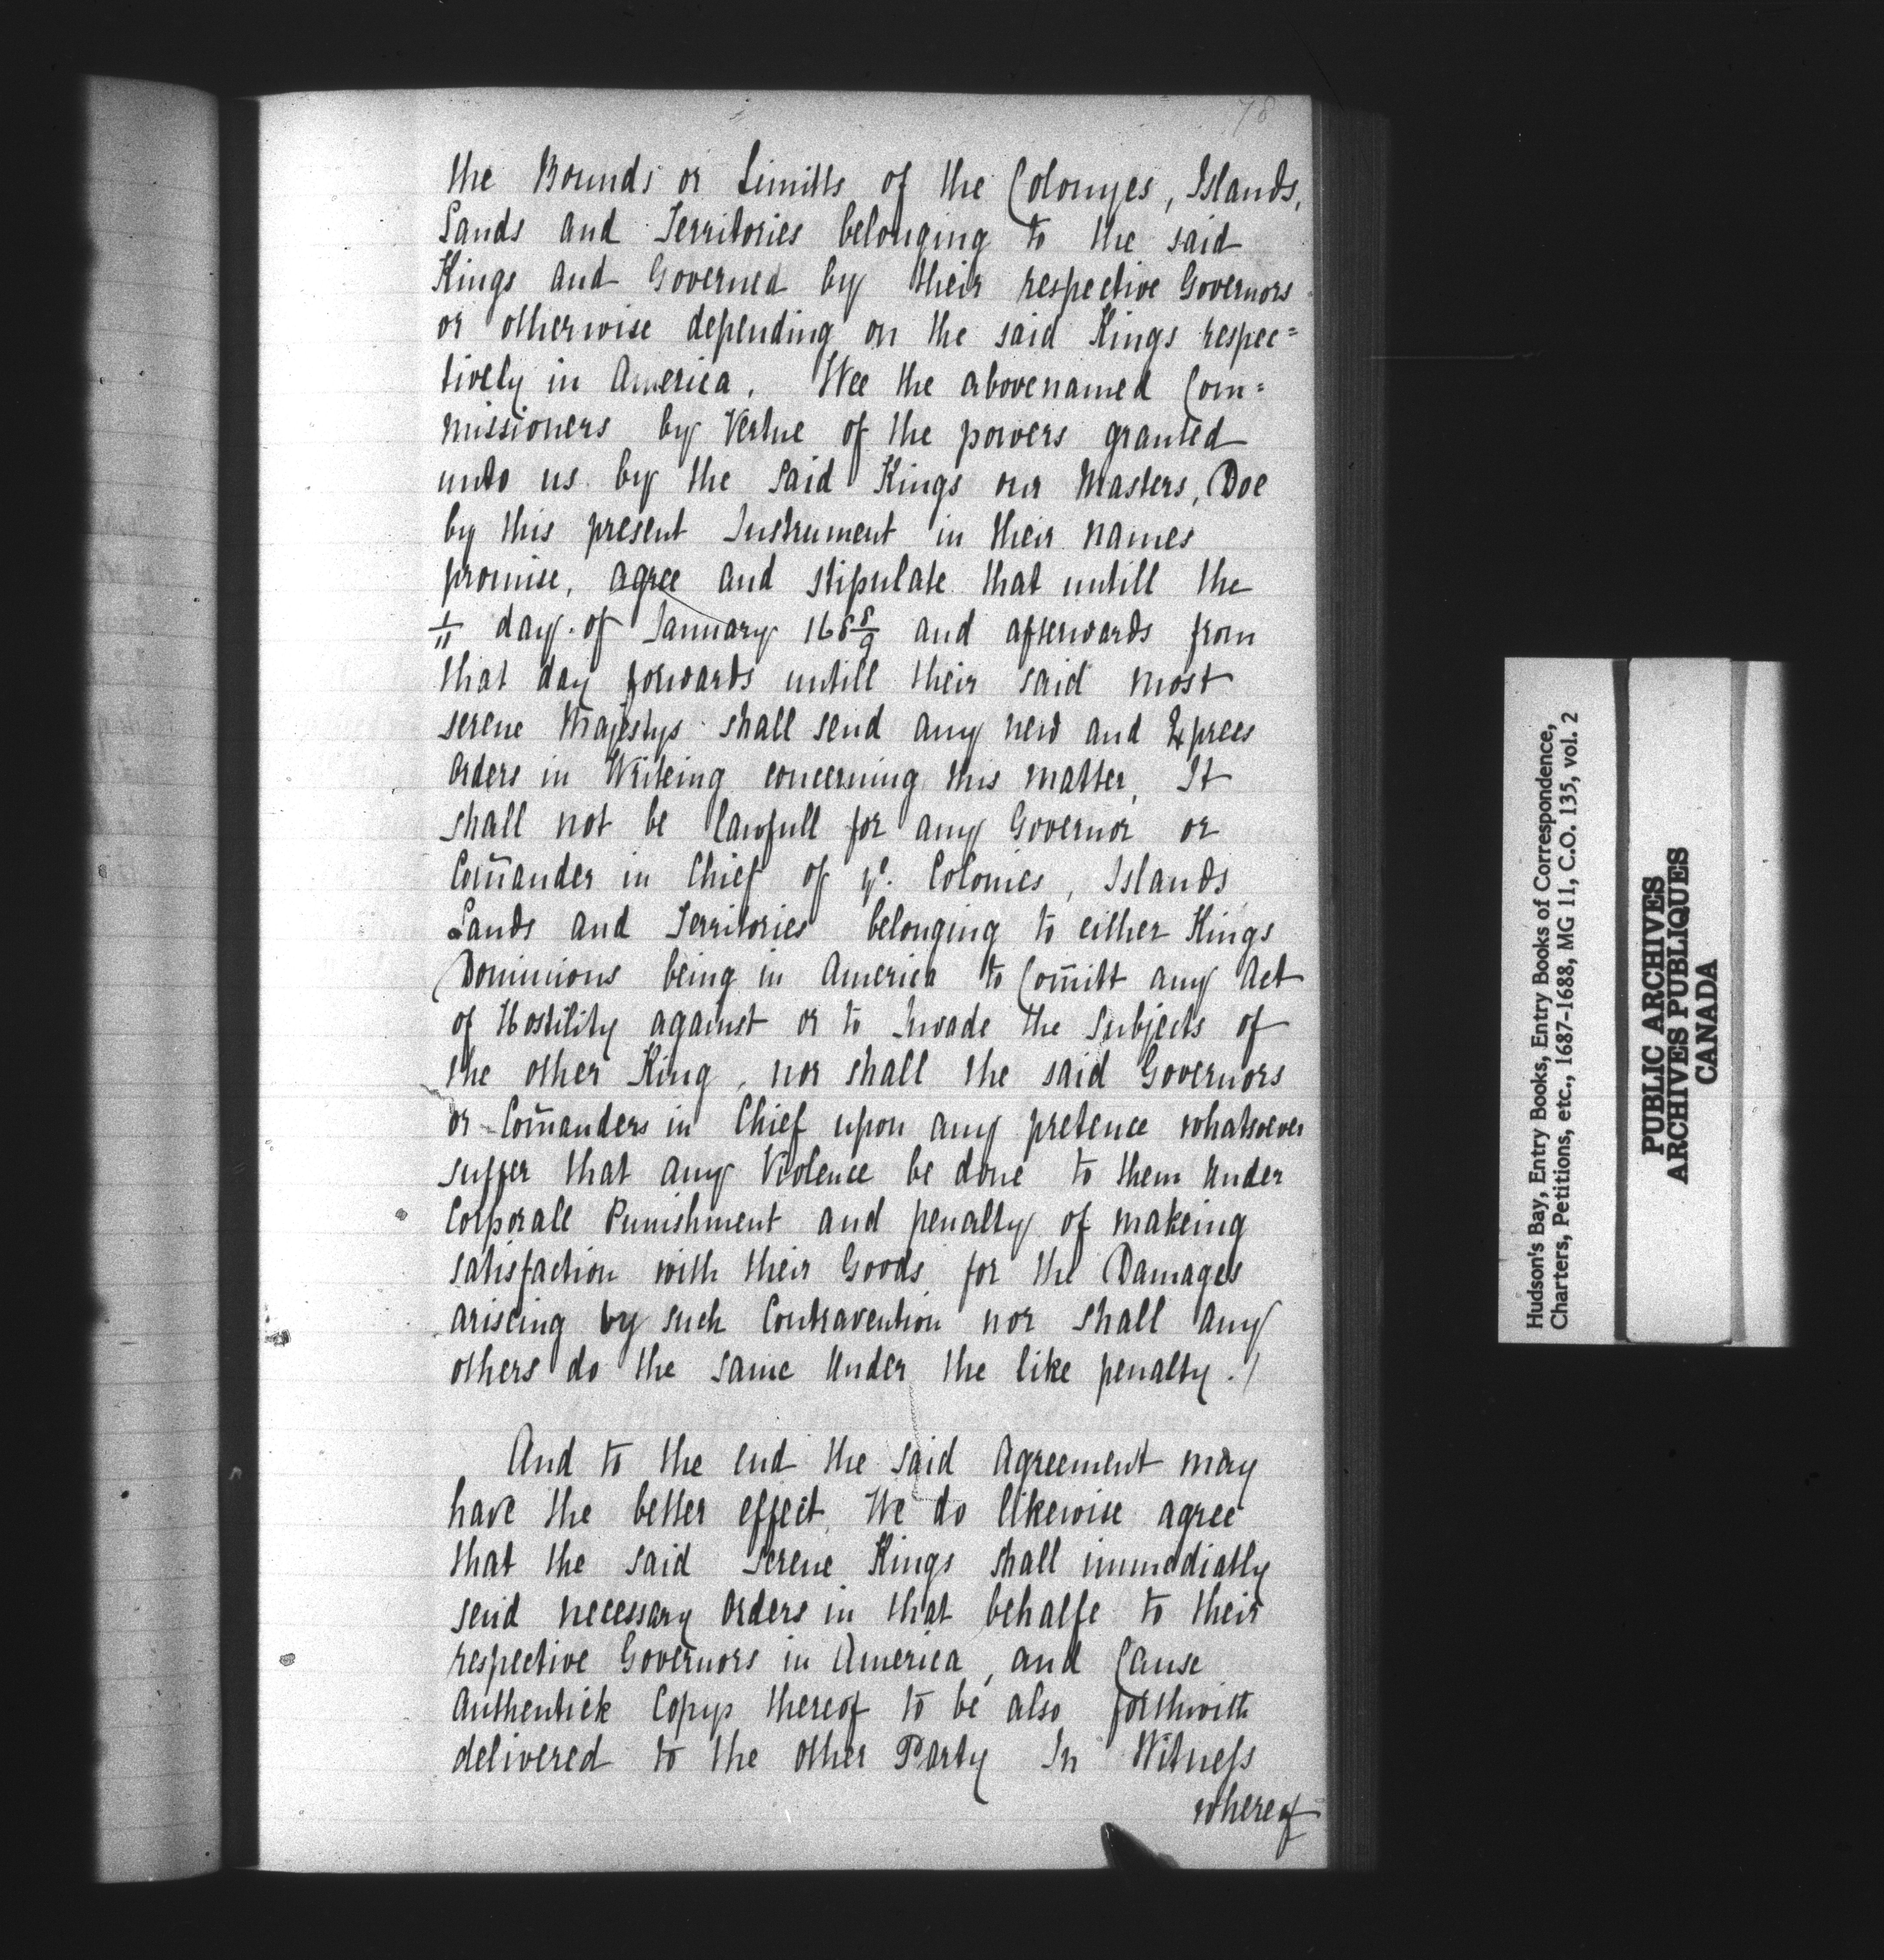 78
the Bounds or Limitts of the Colonyes, Islands,
Lands and Territories belonging to the said
Kings and Governed by their respective Governors
or otherwise depending on the said Kings respec=
tively in America. Wee the abovenamed Com=
missioners by Vertue of the powers granted
unto us by the said Kings our Masters, Doe
by this present Instrument in their names
promise, agree and stipulate that untill the
1/11 day of January 168 8/9 and afterwards from
that day forwards untill their said most
serene Majestys shall send any new and Exprees
Orders in Writeing concerning this matter, It
shall not be lawfull for any Governor or
Com̄ander in Chief of ye. Colonies, Islands
Lands and Territories belonging to either Kings
Dominions being in America to Com̄itt any Act
of Hostility against or to Invade the Subjects of
the other King, nor shall the said Governors
or Com̄anders in Chief upon any pretence whatsoever
suffer that any Violence be done to them Under
Corporall Punishment and penalty of makeing
satisfaction with their Goods for the Damages
ariseing by such Contravention nor shall any
others do the same Under the like penalty./
And to the end the said Agreement may
have the better effect, We do likewise agree
that the said Serene Kings shall immediatly
send necessary Orders in that behalfe to their
respective Governors in America, and Cause
Authentick Copys thereof to be also forthwith
delivered to the other Party In Witness
whereof
Hudson's Bay, Entry Books, Entry Books of Correspondence,
Charters, Petitions, etc., 1687-1688, MG 11, C.O. 135, vol. 2
PUBLIC ARCHIVES
ARCHIVES PUBLIQUES
CANADA